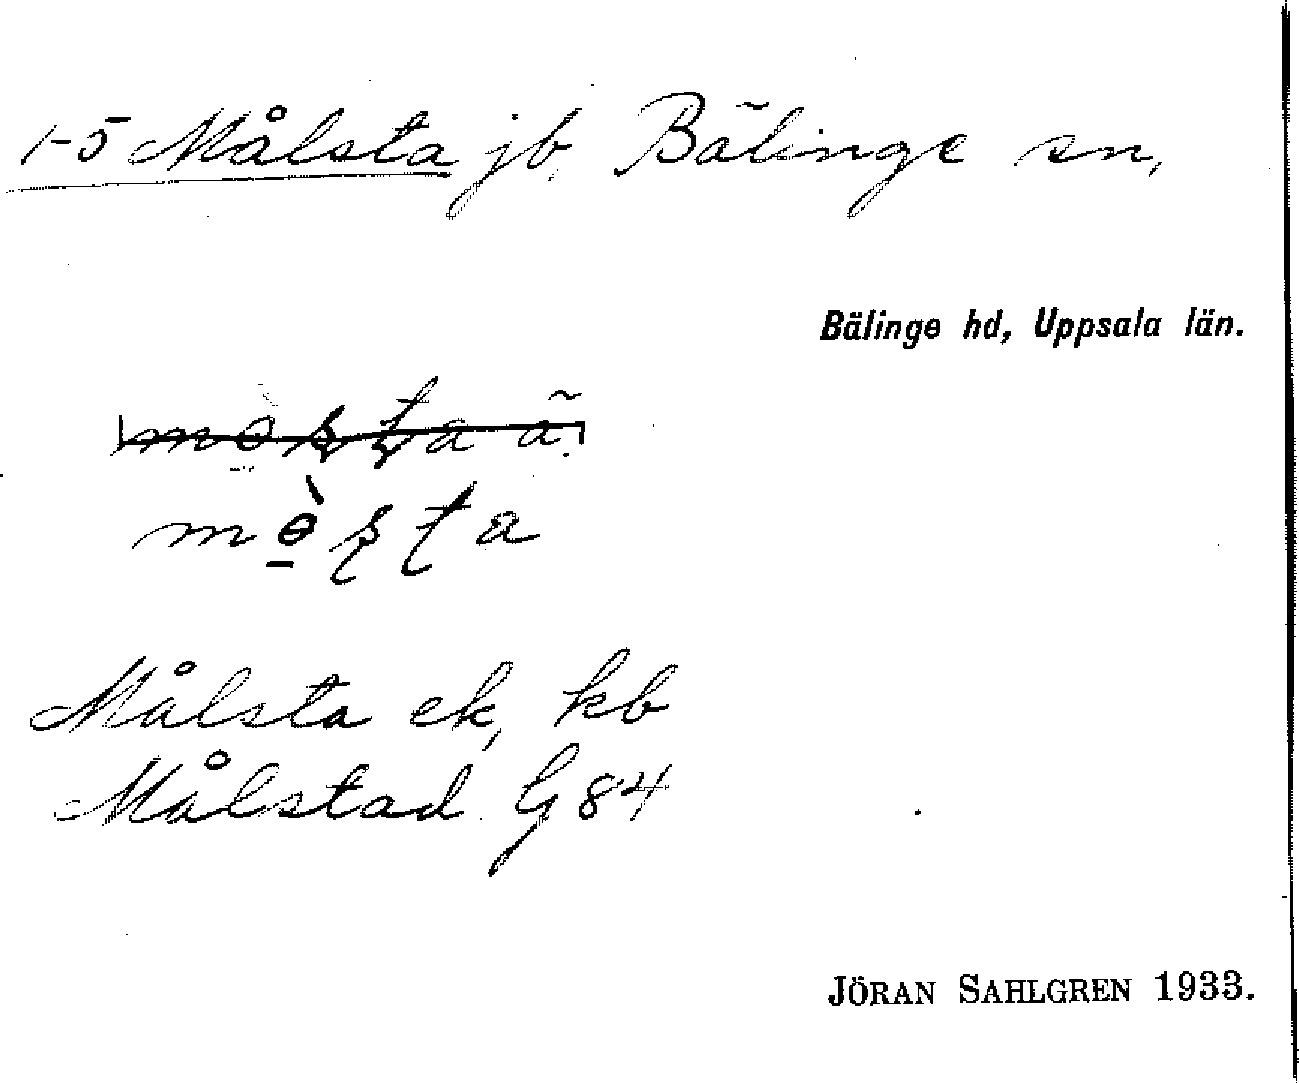 1-5 Målsta jb, Bälinge sn,
Bälinge hd, Uppsala län.
mɵ̱̀ʂʈa
Målsta ek, kb
Målstad G 84
JÖRAN SAHLGREN 1933.